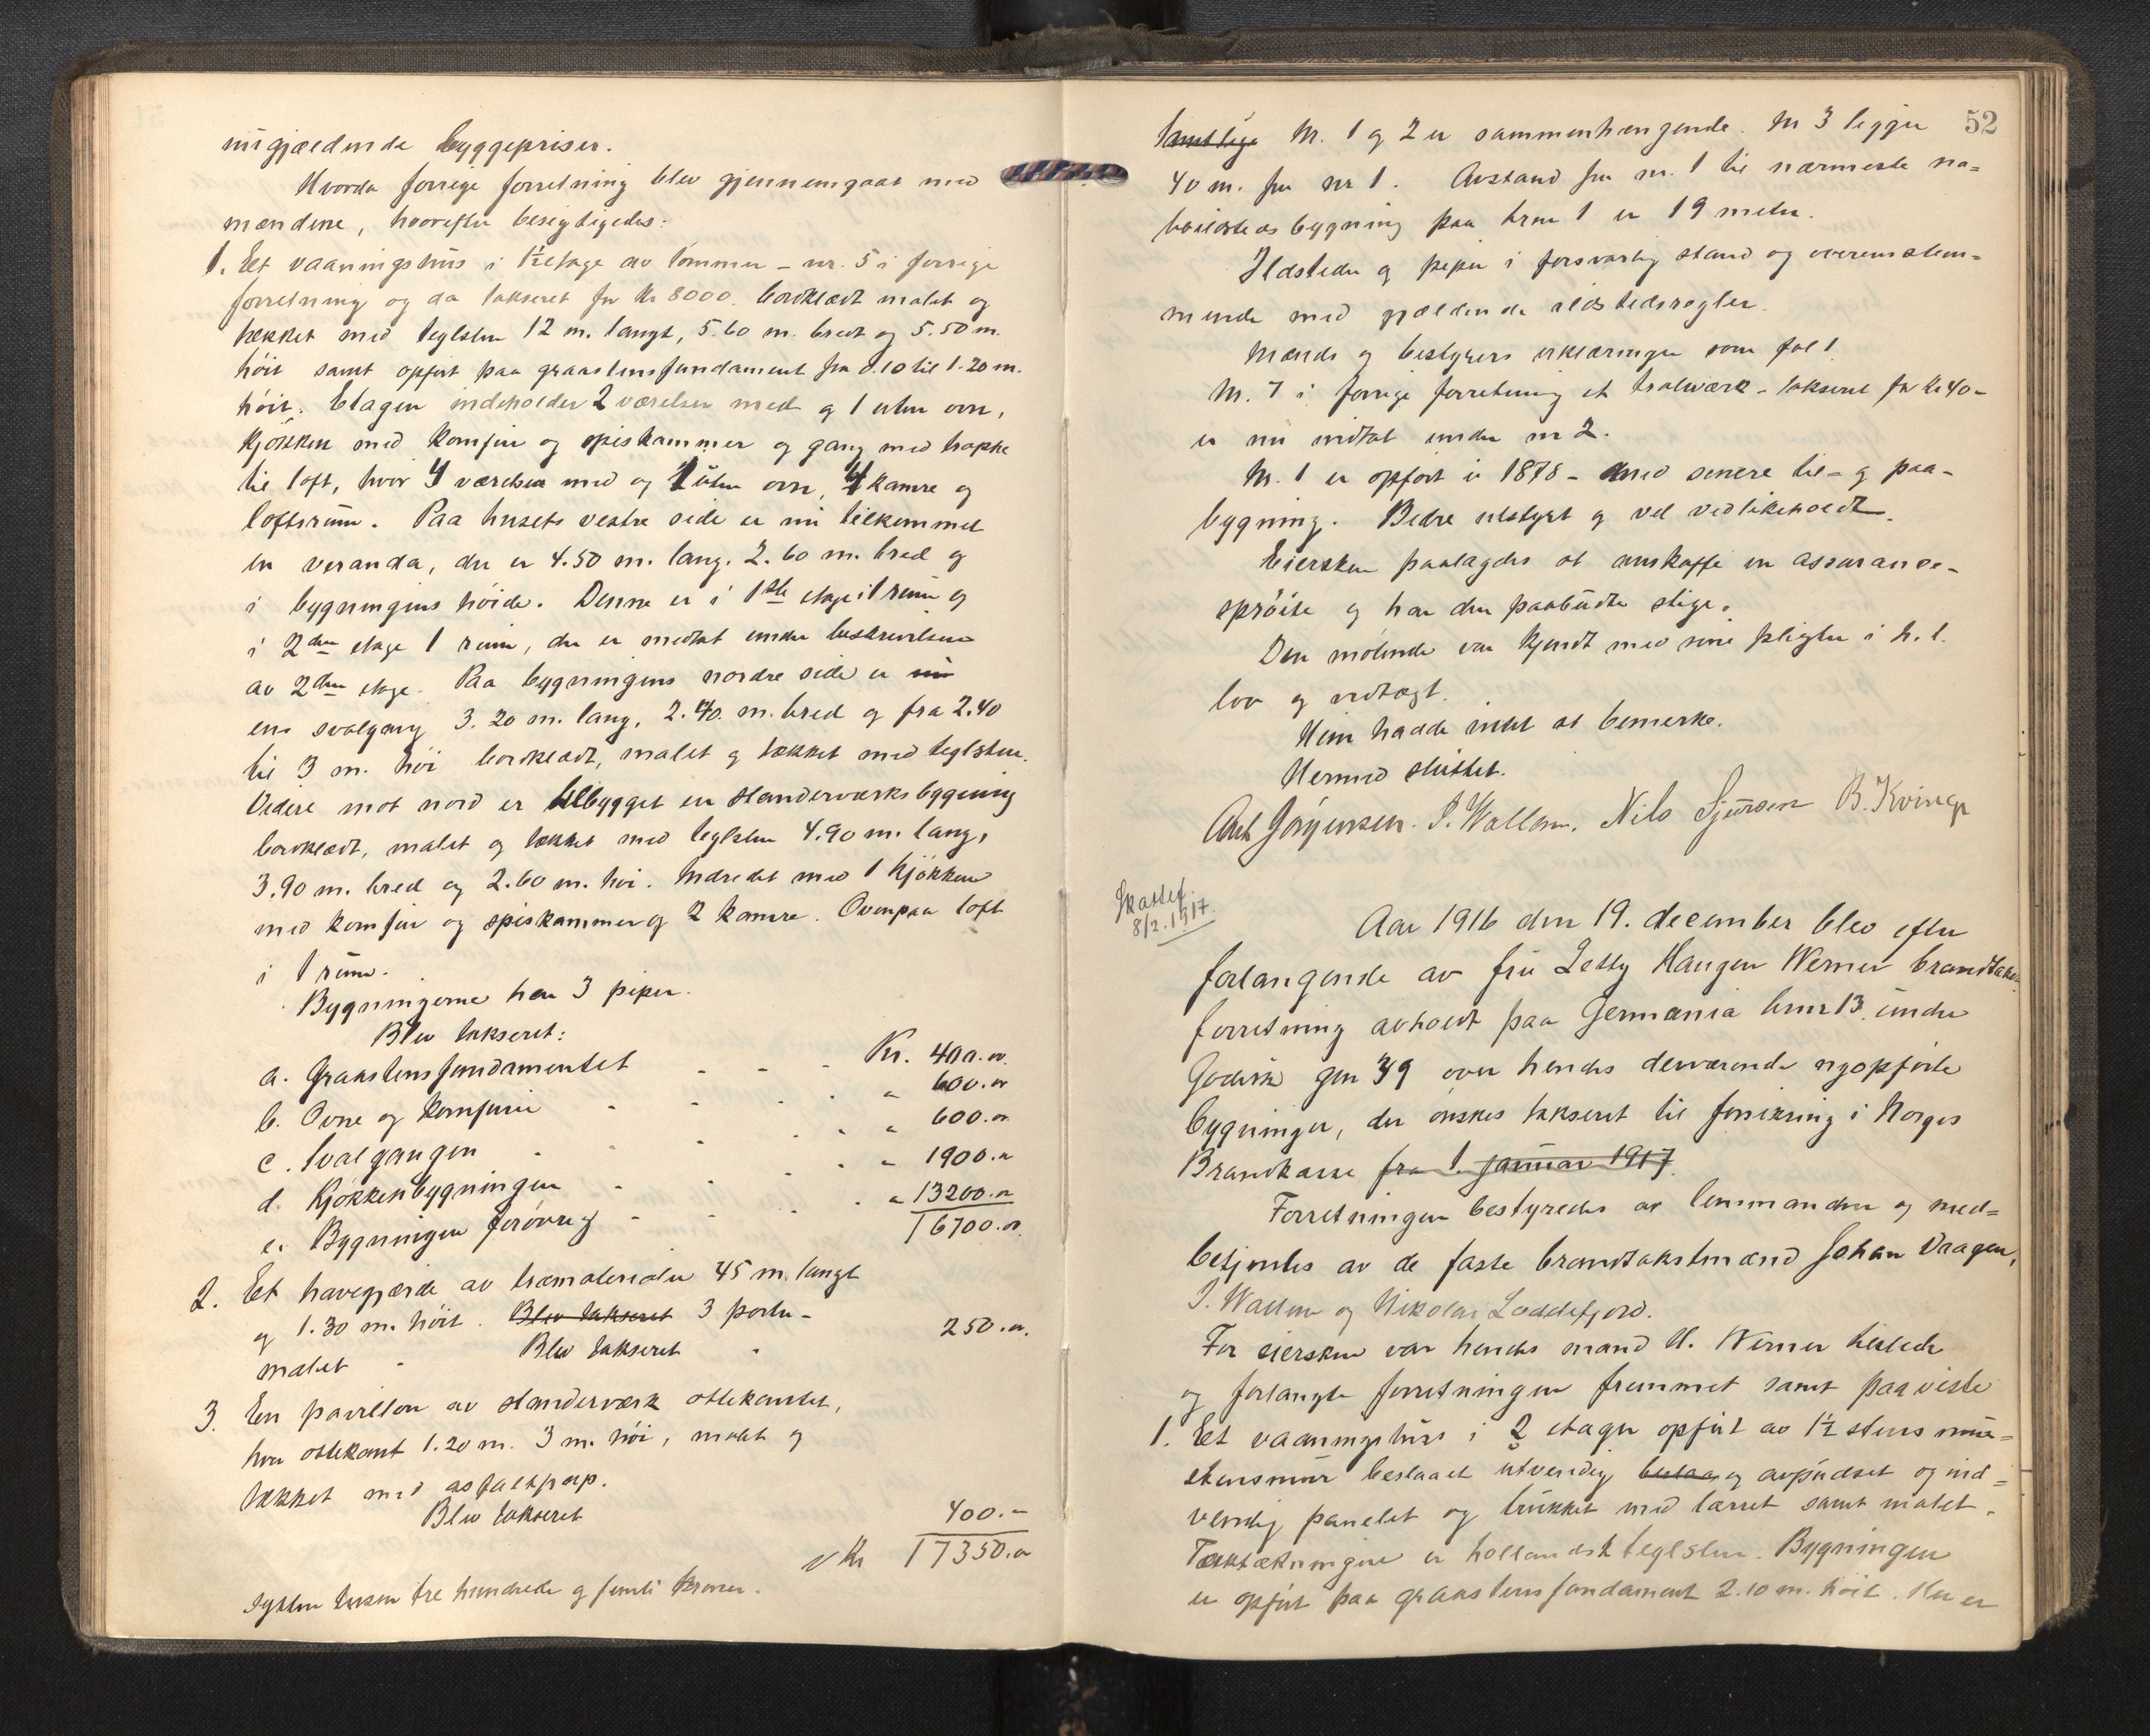 nugjældende byggepriser.
Hvorda forrige forretning blev gjennemgaat med
mændene, hvorefter besigtigedes:
1. Et vaaningshus i 1½ etage av tømmer - nr. 5 i forrige
forretning og da takseret for Kr 8000. bordklædt malet og
tækket med teglsten 12 m. langt, 5.60 m. bredt og 5.50 m.
høit samt opført paa graastensfundament fra 0.10 til 1.20 m.
høit. Etagen indeholder 2 værelser med og 1 uten ovn,
kjøkken med komfur og spiskammer og gang med trappe
til loft, hvor 4 værelser med og 1 uten ovn, 4 kamre og
loftsrum. Paa husets vestre side er nu tilkommet
en veranda, der er 4.50 m. lang. 2.60 m. bred og
i bygningens høide. Denne er i 1ste etage 1 rum og
i 2den etage 1 rum, der er medtat under beskrivelsen
av 2den etage. Paa bygningens nordre side er nu
en svalgang 3.20 m. lang, 2.70. m. bred og fra 2.40
til 3 m. høi bordklædt, malet og tækket med teglsten.
Videre mot nord er tilbygget en standerværksbygning
bordklædt, malet og tækket med teglsten 4.90 m. lang,
3.90 m. bred og 2.60 m. høi. Indredet med 1 kjøkken
med komfur og spiskammer og 2 kamre. Ovenpaa loft
i 1 rum.
Bygningerne har 3 piper.
Blev takseret:
a. Graastensfundamentet - - - Kr. 400.00
b. Ovne og komfurer - - - - " 600.00
c. Svalgangen - - - - " 600.00
d. Kjøkkenbygningen - - - " 1900.00
e. Bygningen forøvrig - - - " 13200.00
16700.00
2. Et havegjærde av træmaterialer 45 m. langt
og 1.30 m. høit. Blev takseret 3 porter -
malet - Blev takseret - 250.00.
3. En pavillon av standerværk ottekantet,
hver ottekant 1.20 m. 3 m. høi, malet og
tækket med asfaltpap.
Blev takseret 400.-
Kr 17350.00
Sytten tusen tre hundrede og femti kroner.
52
Samtlige Nr. 1 og 2 er sammenhængende. Nr 3 ligger
40 m. fra nr 1. Avstand fra nr. 1 til nærmeste na=
boiersteds bygning paa brnr 1 er 19 meter.
Ildsteder og piper i forsvarlig stand og overensstem=
mende med gjældende ildstedsregler.
Mænds og bestyrers erklæringer som fol 1.
Nr. 7 i forrige forretning et tralværk - takseret for Kr 40-
er nu indtat under nr 2.
Nr. 1 er opført i 1878 - med senere til- og paa-
bygning. Bedre utstyrt og vel vedlikeholdt.
Eiersken paalagdes at anskaffe en assurance-
sprøite og har den paabudte stige.
Den møtende var kjendt med sine pligter i h. t.
lov og vedtægt.
Han hadde intet at bemerke.
Hermed sluttet.
Jørgensen. J. Wallem. Nils Sjursen B. Kvinge
8/2.1917.
Aar 1916 den 19. december blev efter
forlangende av fru Letty Haugen Werner brandtakst
forretning avholdt paa Germania brnr 13 under
Godvik gnr 39 over hendes derværende nyopførte
bygninger, der ønskes takseret til forsikring i Norges
Brandkasse fra 1. januar 1917.
Forretningen bestyredes av lensmanden og med=
betjentes av de faste brandtakstmænd Johan Dragen,
J. Wallem og Nikolai Loddefjord.
For eiersken var hendes mand H. Werner tilstede
og forlangte forretningen fremmet samt paaviste
1. Et vaaningshus i 2 etager opført av 1½ stens mur=
stensmur beslaaet utvendig beslaa og avpudset og ind=
vendig panelet og trukket med lærret samt malet.
Taktækningen er hollandsk teglsten. Bygningen
er opført paa graastensfundament 2.10 m. høit. Der er